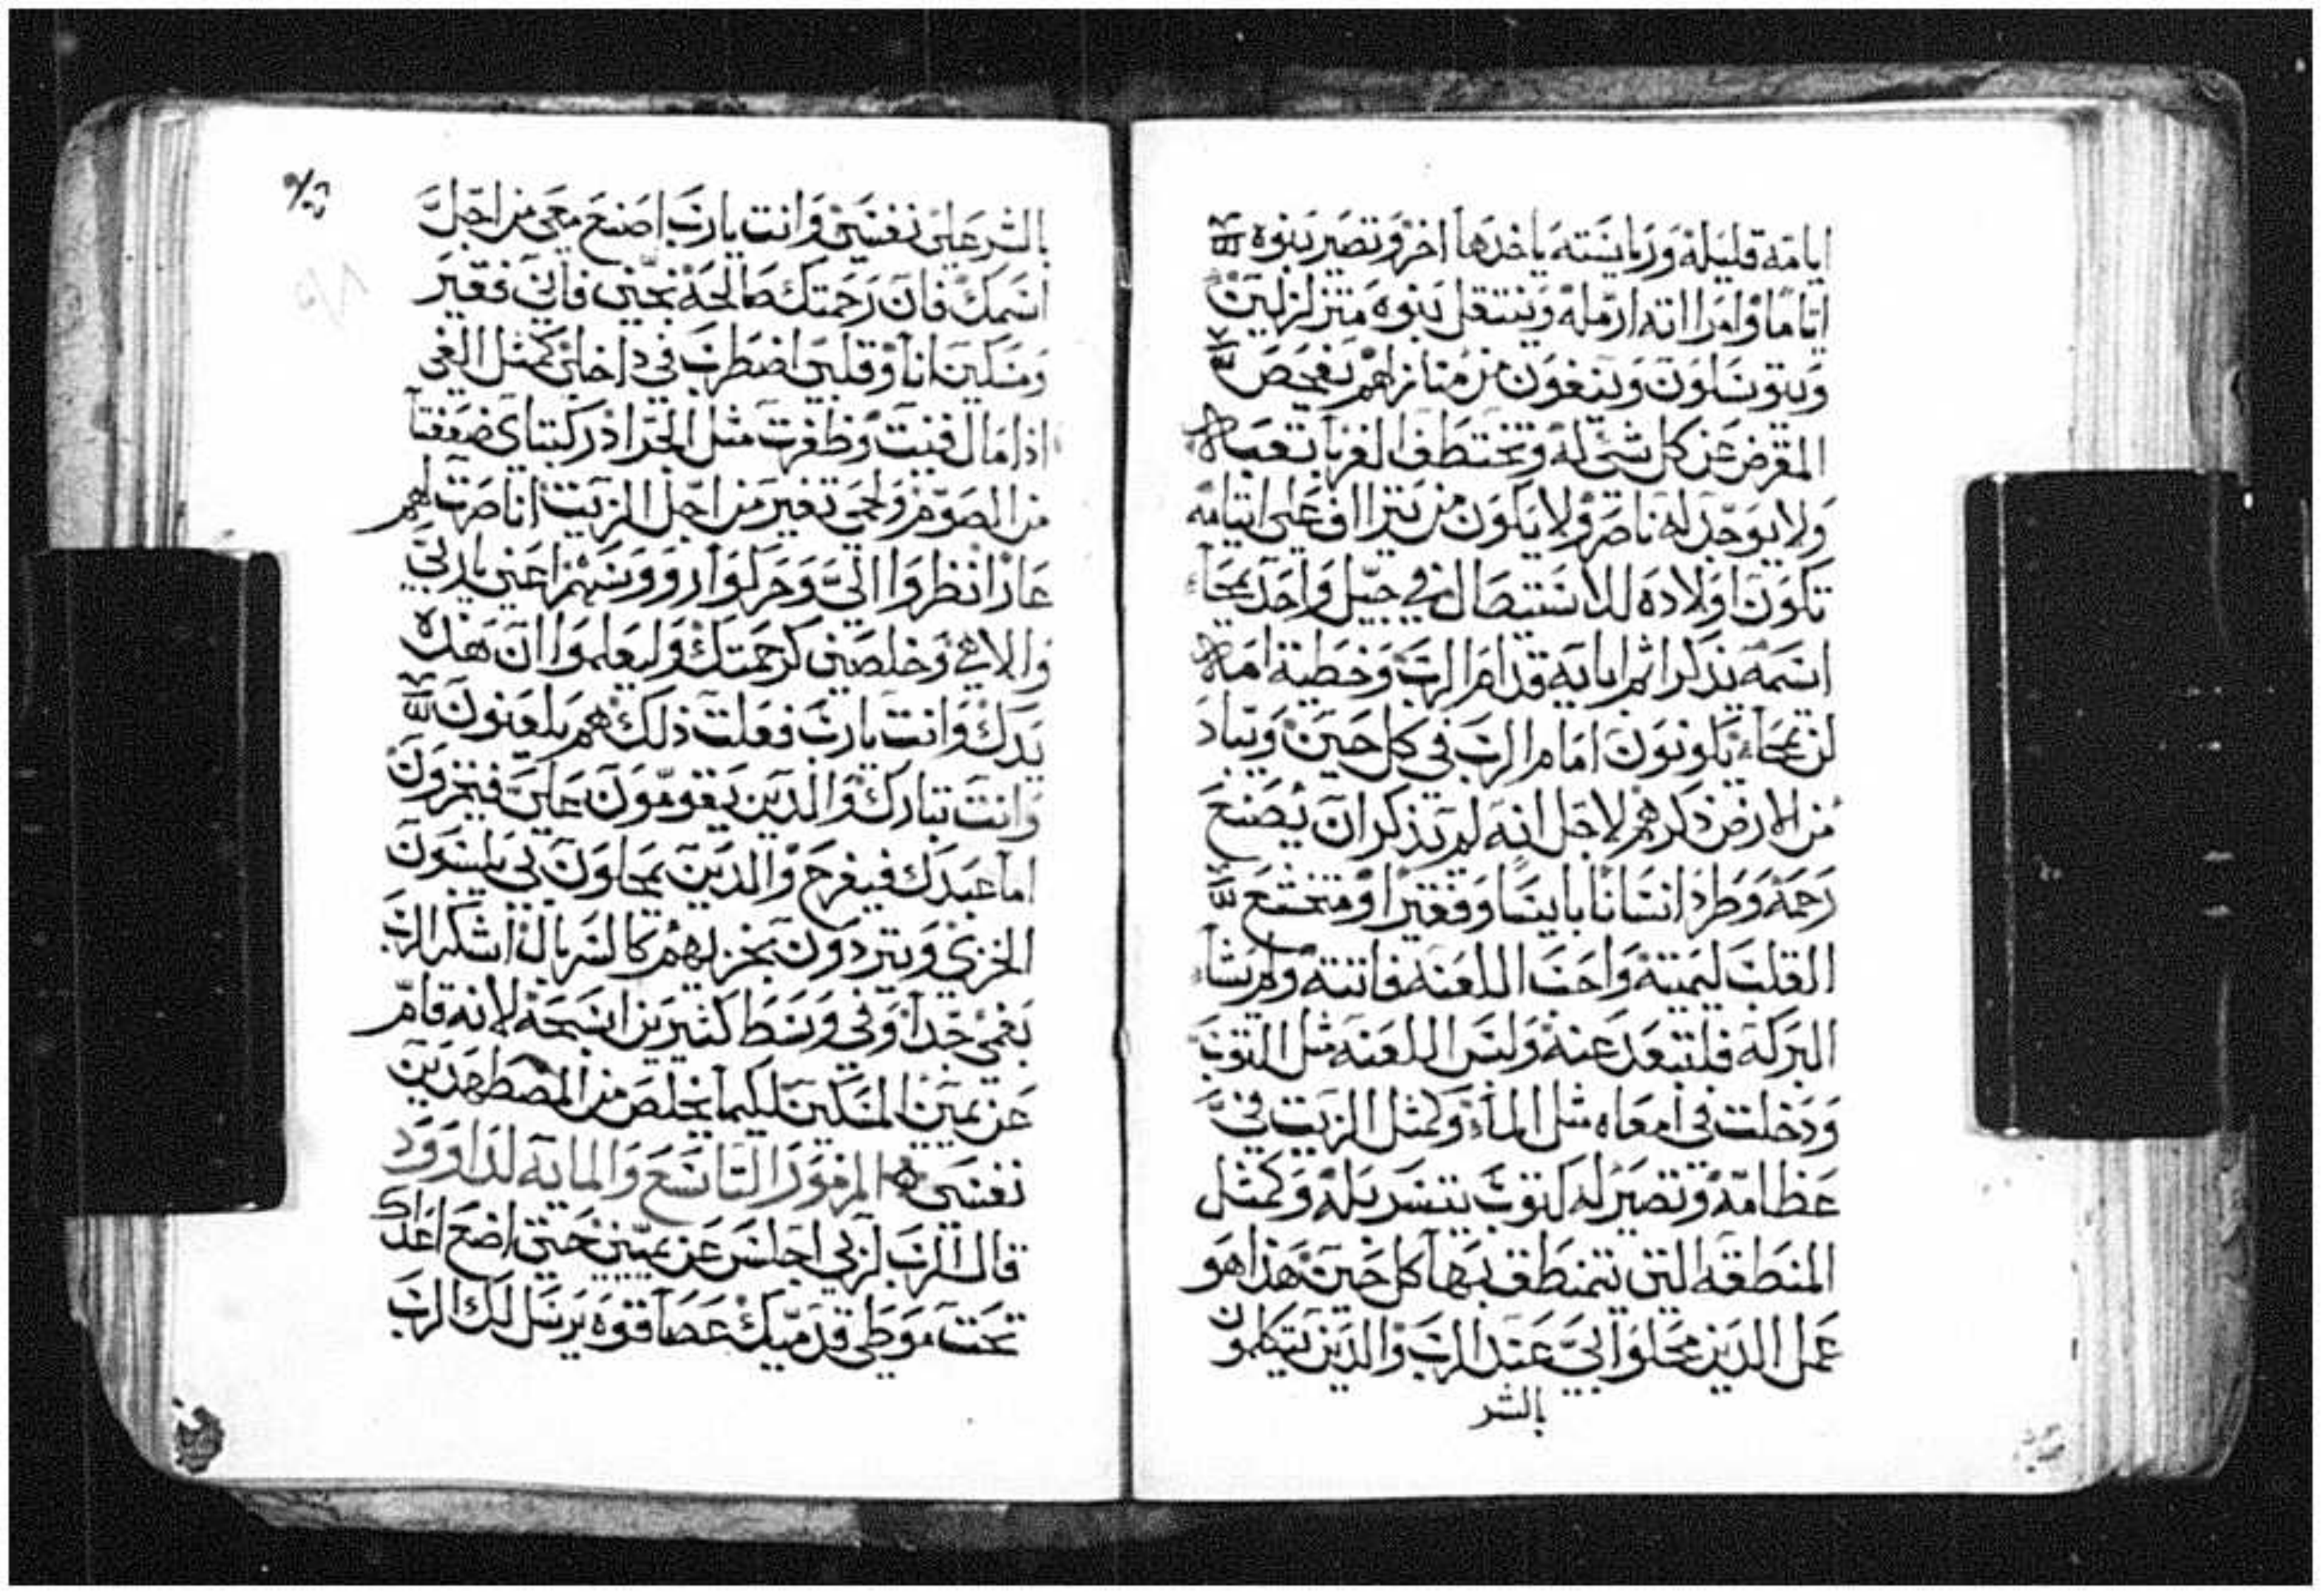 ايامه قليله ورياسته ياخدها اخر وتصير بنوه
ايتاما وامراته ارمله وينتقل بنوه متزلزلين
ويتوسلون وينفون من منازلهم يفحص
المقرض عن كل شي له وتختطف الغربا تعبه
ولا يوجد له ناصر ولا يكون من يتراف على ايتامه
تكون اولاده للاستيصال في جيل واحد يمحا
اسمه يذكر اثم ابايه قدام الرب وخطية امه
لن تمحاء يكونون امام الرب في كل حين ويباد
من الارض ذكرهم لاجل انه لم يذكر ان يصنع
رحمه وطرد انسانا بايسا وفقيرا ومتخشع
القلب ليميته واحب اللعنه فاتته ولم يشاء
البركه فلتبعد عنه ولبس اللعنه مثل الثوب
ودخلت في امعاه مثل الماء وكمثل الزيت في
عظامه وتصير له كثوب يتسربله وكمثل
المنطقه التي يتمنطق بها كل حين هذا هو
عمل الدين محلوا بي عند الرب والدين يتكلمون
بالشر
بالشر على نفسي وانت يارب اصنع معي من اجل
اسمك فان رحمتك صالحة نجيني فاني فقير
ومسكين انا وقلبي اضطرب في داخلي كمثل الفي
اذا مال فنيت وظفرت مثل الجراد ركبتاي ضعفتا
من الصوم ولحمي تغير من اجل الزيت انا صرت لهم
عارا نظروا الي وحركوا روسهم اعني يا ربي
والاهي وخلصني كرحمتك وليعلموا ان هذه
يدك وانت يارب فعلت ذلك هم يلعنون
وانت تبارك والدين يقومون علي فيخزون
اما عبدك فيفرح والدين يمحلون بي يلبسون
الخزي ويتردون بخزيهم كالسربال اشكر الرب
بفمي جدا وفي وسط كثيرين اسبحه لانه قام
عن يمين المسكين لكيما يخلص من المضطهدين
نفسي المزمور التاسع والمايه لداوود
قال الرب لربي اجلس عن يميني حتى اضع اعداك
تحت موطي قدميك عصا قوه يرسل لك الرب